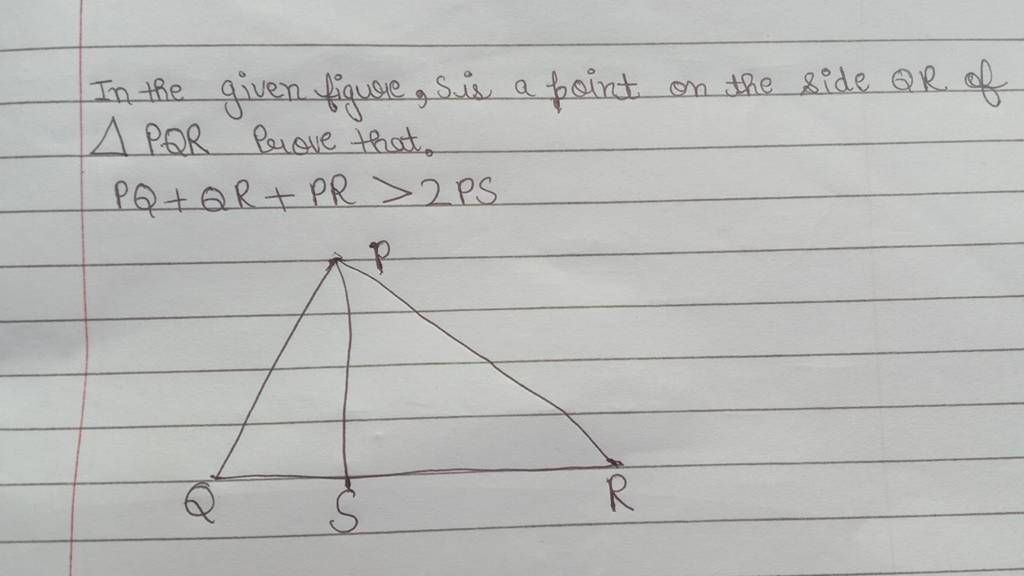 In the given figure, S is a point on the side QR of
△ PQR Prove that.
PQ + QR + PR > 2PS
P
Q
S
R